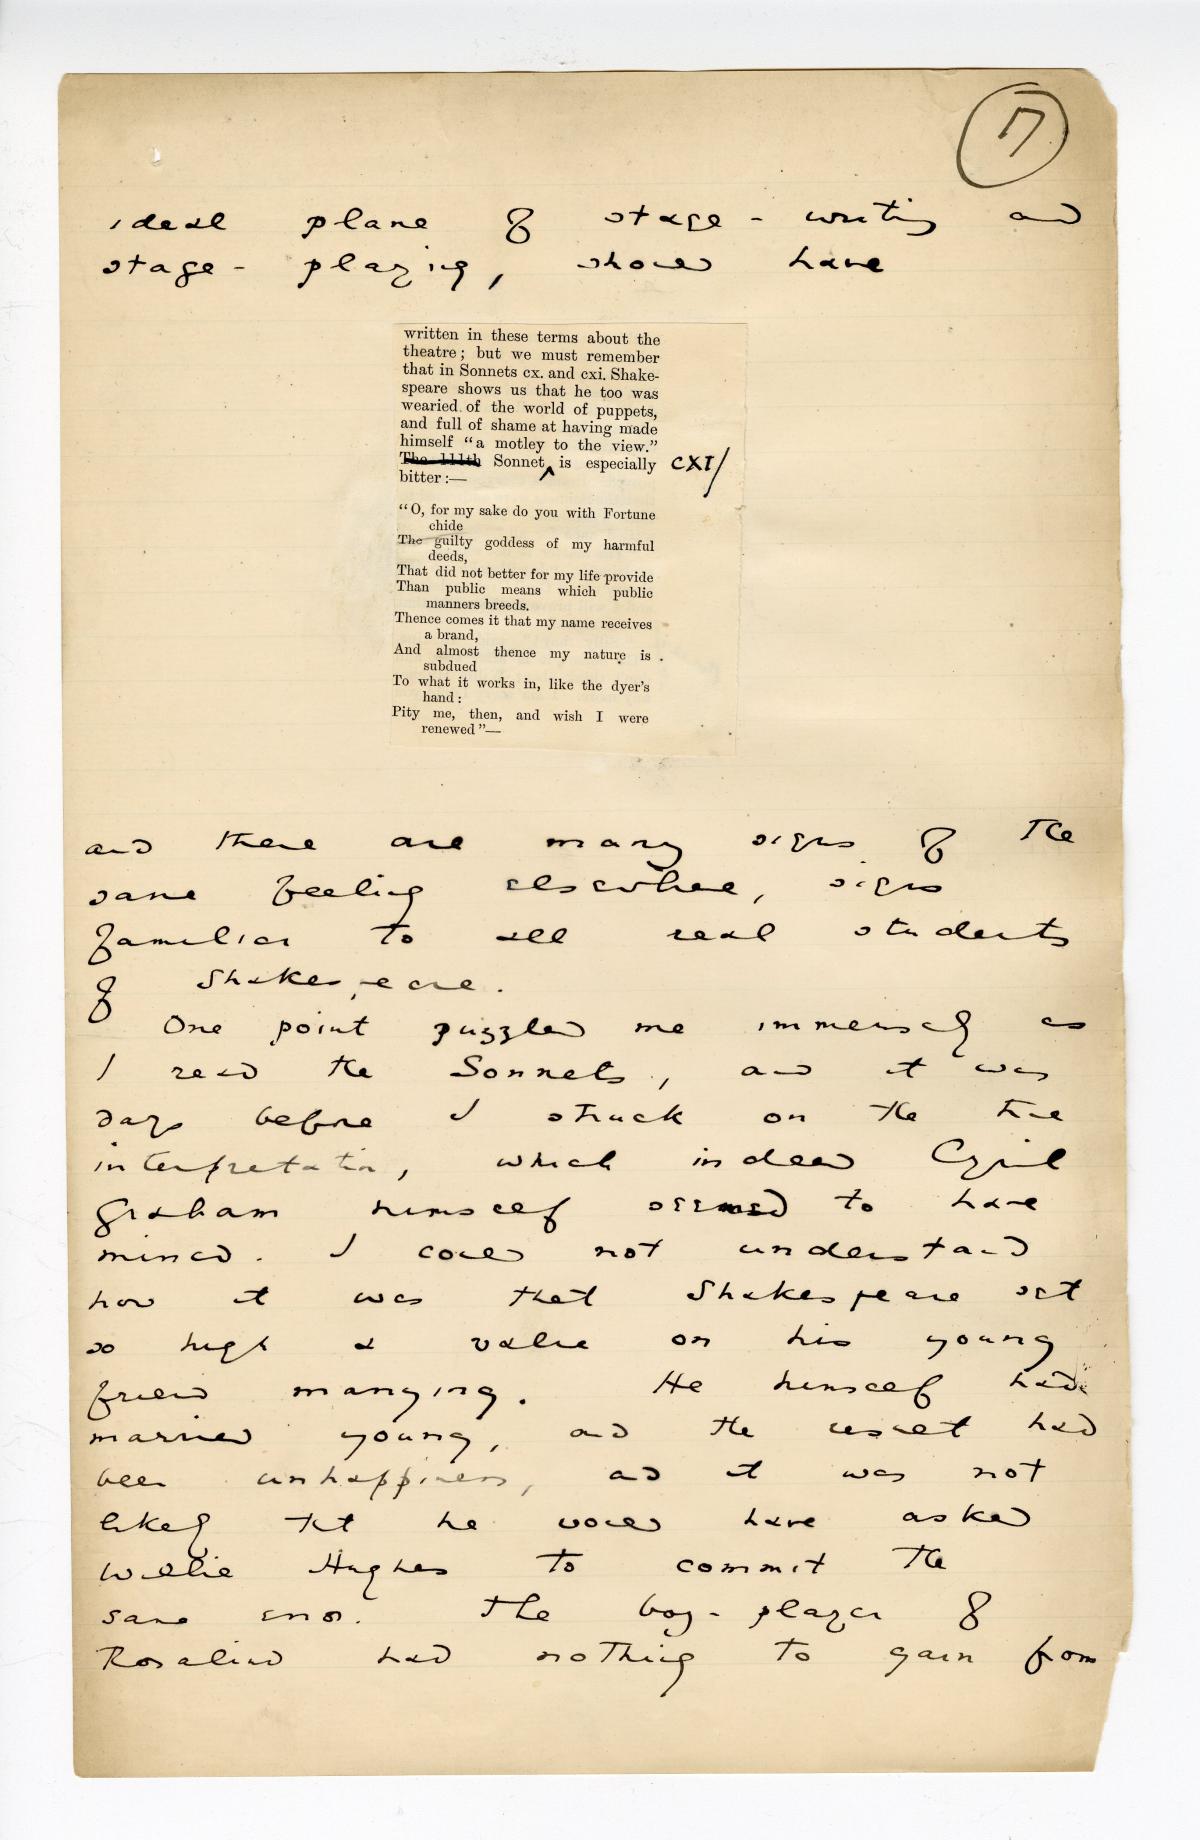 17
ideal plane of stage-writing and
stage-playing, should have
written in these terms about the
theatre; but we must remember
that in Sonnets cx. and cxi. Shake-
speare shows us that he too was
wearied of the world of puppets,
and full of shame at having made
himself "a motley to the view."
The 111th Sonnet ^ is especially CXI/
bitter:—
"O, for my sake do you with Fortune
chide
The guilty goddess of my harmful
deeds,
That did not better for my life provide
Than public means which public
manners breeds.
Thence comes it that my name receives
a brand,
And almost thence my nature is
subdued
To what it works in, like the dyer's
hand:
Pity me, then, and wish I were
renewed"—
and there are many signs of the
same feeling elsewhere, signs
familiar to all real students
of Shakespeare.
One point puzzled me immensely as
I read the Sonnets, and it was
days before I struck on the true
interpretation, which indeed Cyril
Graham himself seemed to have
missed. I could not understand
how it was that Shakespeare set
so high a value on his young
friend marrying. He himself had
married young, and the result had
been unhappiness, and it was not
likely that he would have asked
Willie Hughes to commit the
same error. The boy-player of
Rosalind had nothing to gain from